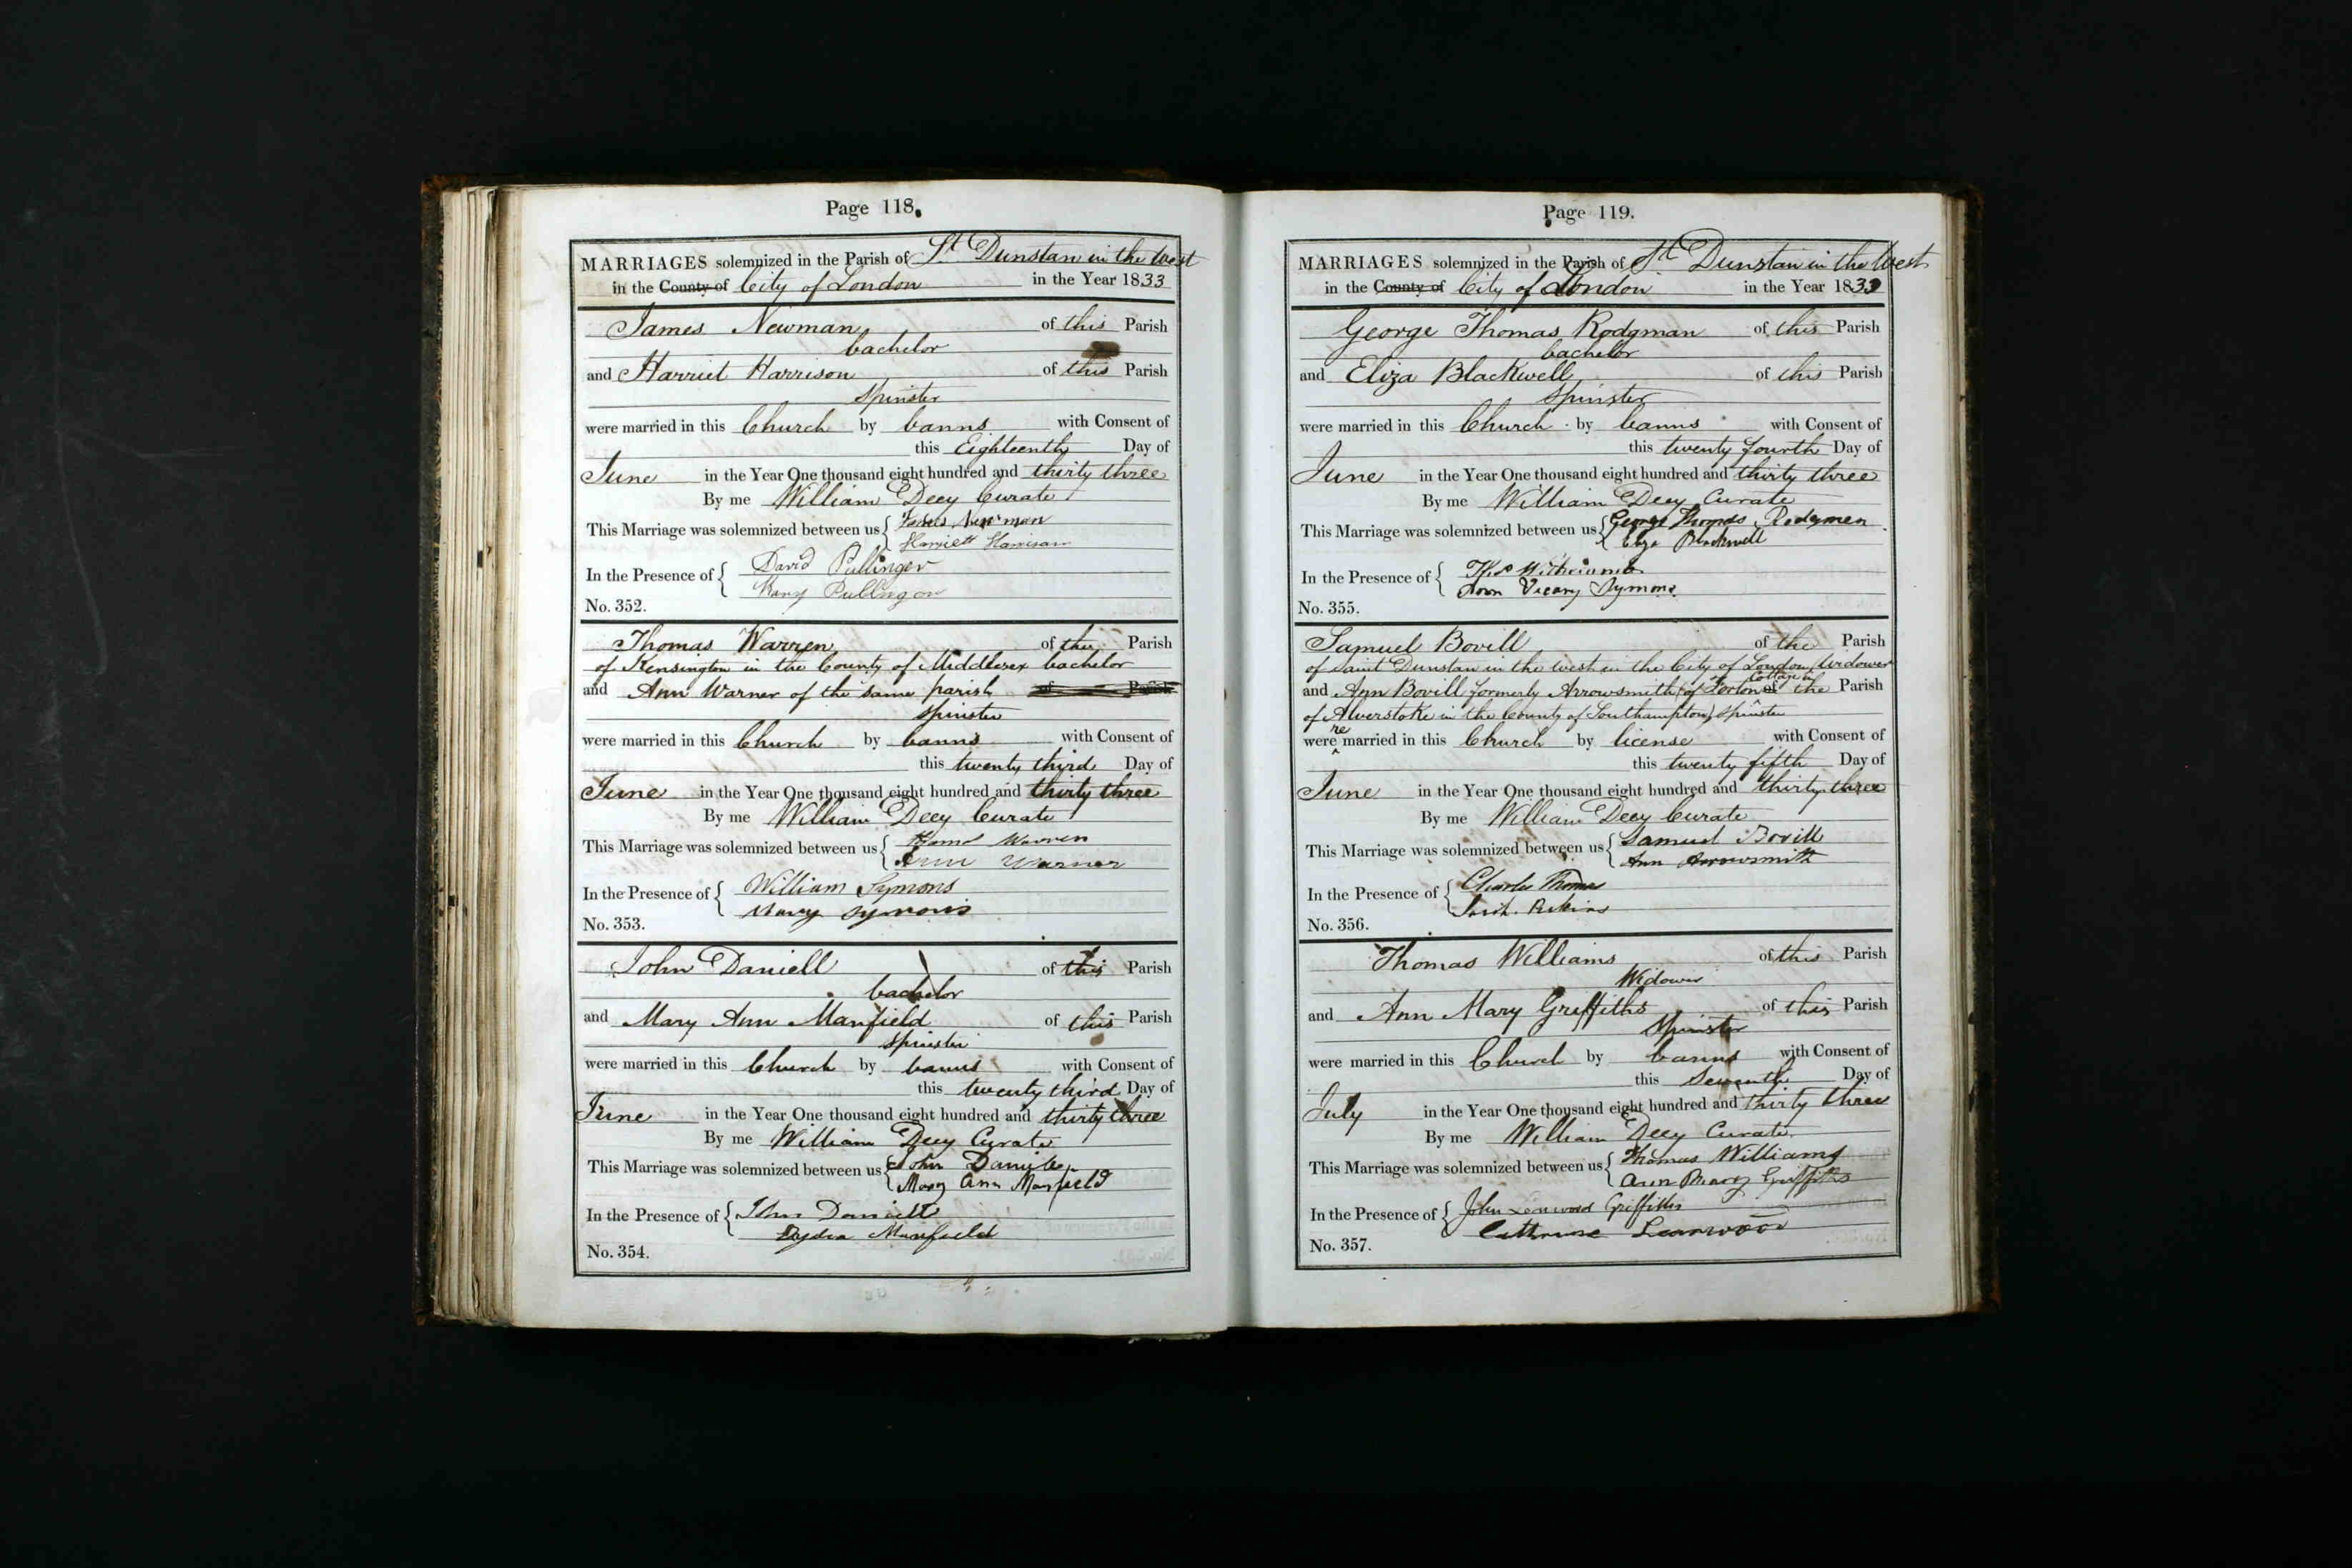 Page 118.
MARRIAGES solemnized in the Parish of St Dunstan in the West
in the County of City of London in the Year 1833
James Newman of this Parish
bachelor
and Harriet Harrison of this Parish
Spinster
were married in this Church by banns with Consent of
this Eighteenth Day of
June in the Year One thousand eight hundred and thirty three
By me William Deey Curate
This Marriage was solemnized between us { James Newman
Harriett Harrison
In the Presence of { David Pullinger
Mary
No. 352.
Thomas Warren of the Parish
of Kensington in the County of Middlesex bachelor
and Ann Warner of the same parish of Parish
Spinster
were married in this Church by banns with Consent of
this twenty third Day of
June in the Year One thousand eight hundred and thirty three
By me William Deey Curate
This Marriage was solemnized between us { Warren
Ann Warner
In the Presence of { William Symons
Mary Symons
No. 353.
John Daniell of this Parish
bachelor
and Mary Ann Manfield of this Parish
Spinster
were married in this Church by banns with Consent of
this twenty third Day of
June in the Year One thousand eight hundred and thirty three
By me William Deey Curate
This Marriage was solemnized between us { John Daniell
Mary Ann Manfield
In the Presence of { John Daniell
Lydia Manfield
No. 354.
Page 119.
MARRIAGES solemnized in the Parish of St Dunstan in the West
in the County of City of London in the Year 1833
George Thomas Rodgman of this Parish
bachelor
and Eliza Blackwell of this Parish
Spinster
were married in this Church by banns with Consent of
this twenty fourth Day of
June in the Year One thousand eight hundred and thirty three
By me William Deey Curate
This Marriage was solemnized between us { George Thomas Rodgman
Eliza Blackwell
In the Presence of {
Vicary Symons
No. 355.
Samuel Bovill of the Parish
of Saint Dunstan in the west in the City of London Widower
and Ann Bovill formerly Arrowsmith (of Cottage in of the Parish
of Alverstoke in the County of Southampton) Spinster
were re married in this Church by license with Consent of
this twenty fifth Day of
June in the Year One thousand eight hundred and thirty three
By me William Deey Curate
This Marriage was solemnized between us { Samuel Bovill
Ann Arrowsmith
In the Presence of { Charles Thomas
No. 356.
Thomas Williams of this Parish
Widower
and Ann Mary Griffiths of this Parish
Spinster
were married in this Church by banns with Consent of
this Seventh Day of
July in the Year One thousand eight hundred and thirty three
By me William Deey Curate
This Marriage was solemnized between us { Thomas Williams
Ann Mary Griffiths
In the Presence of { John Griffiths
Learwood
No. 357.